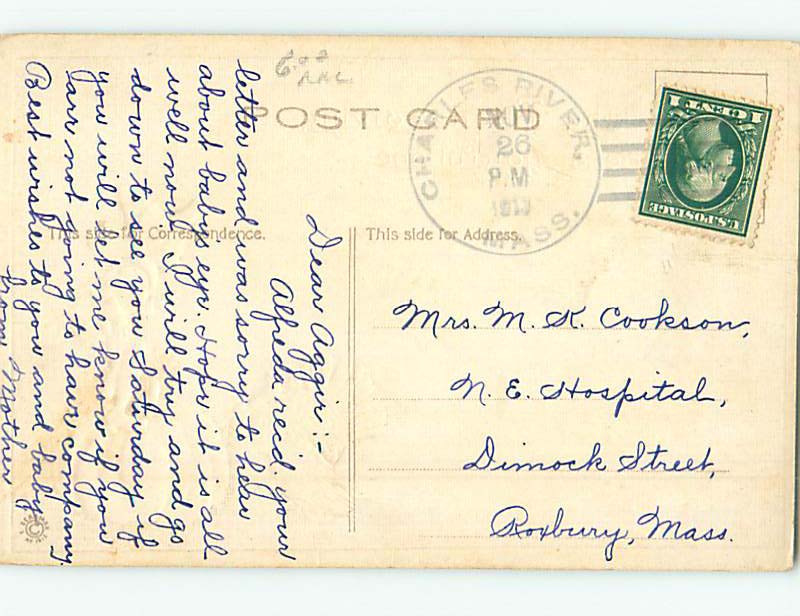 6.02
POST CARD
CHARLES RIVER,
JUN
26
P.M
1913
MASS.
1 CENT 1
U.S. POSTAGE
This side for Correspondence.
This side for Address.
Dear Aggie:-
Alfreda rec'd your
letter and was sorry to hear
about babys eye. Hope it is all
well now. I will try and go
down to see you Saturday if
you will let me know if you
are not going to have company.
Best wishes to you and baby
from Mother
Mrs. M. K. Cookson,
N. E. Hospital,
Dimock Street,
Roxbury, Mass.